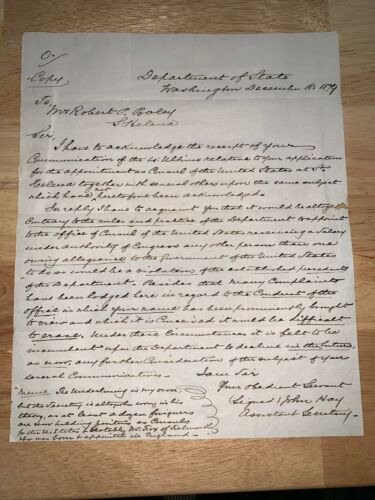 O.
Copy
Department of State
Washington December 18. 1879
To
Mr Robert P. Pooley
St Helena
Sir,
I have to acknowledge the receipt of your
Communication of the 4. Ultimo relative to your application
for the appointment as Consul of the United States at St
Helena together with several others upon the same subject
which have not heretofore been acknowledged.
In reply I have to acquaint you that it would be altogether
Contrary to the rules and practice of the Department to appoint
to the office of Consul of the United States receiving a salary
under Authority of Congress any other person than one
owing allegiance to the Government of the United States
to do so would be a violation of the established precedents
of the Department. Besides that many Complaints
have been lodged here in regard to the Conduct of the
office in which your name has been prominently brought
to view and which it is believed it would be difficult
to erase. Under these Circumstances it is felt to be
incumbent upon the Department to decline in the future,
as now, any further Consideration of the subject of your
several Communications.
I am Sir
Your Obedient Servant
Signed / John Hay
Assistant Secretary.
Memo The Underlining is my own,
but the Secretary is altogether wrong in his
theory, as at least a dozen foreigners
are now holding positions as Consuls
for the U. States & notably Mr Fox of Falmouth
who was born & appointed in England